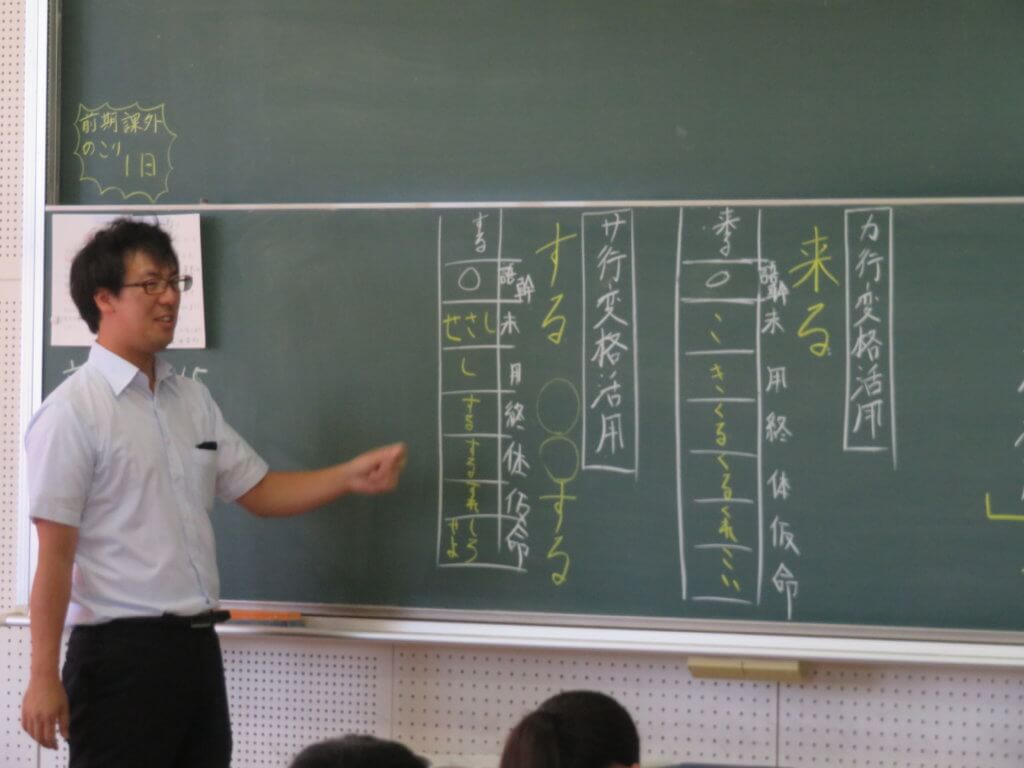 前期課外
のこり
1日
カ行変格活用
来る
語幹 未 用 終 体 仮 命
来る ○ こ き くる くる くれ こい
サ行変格活用
する ○○する
語幹 未 用 終 体 仮 命
する ○ しさせ し する する すれ しろ せよ